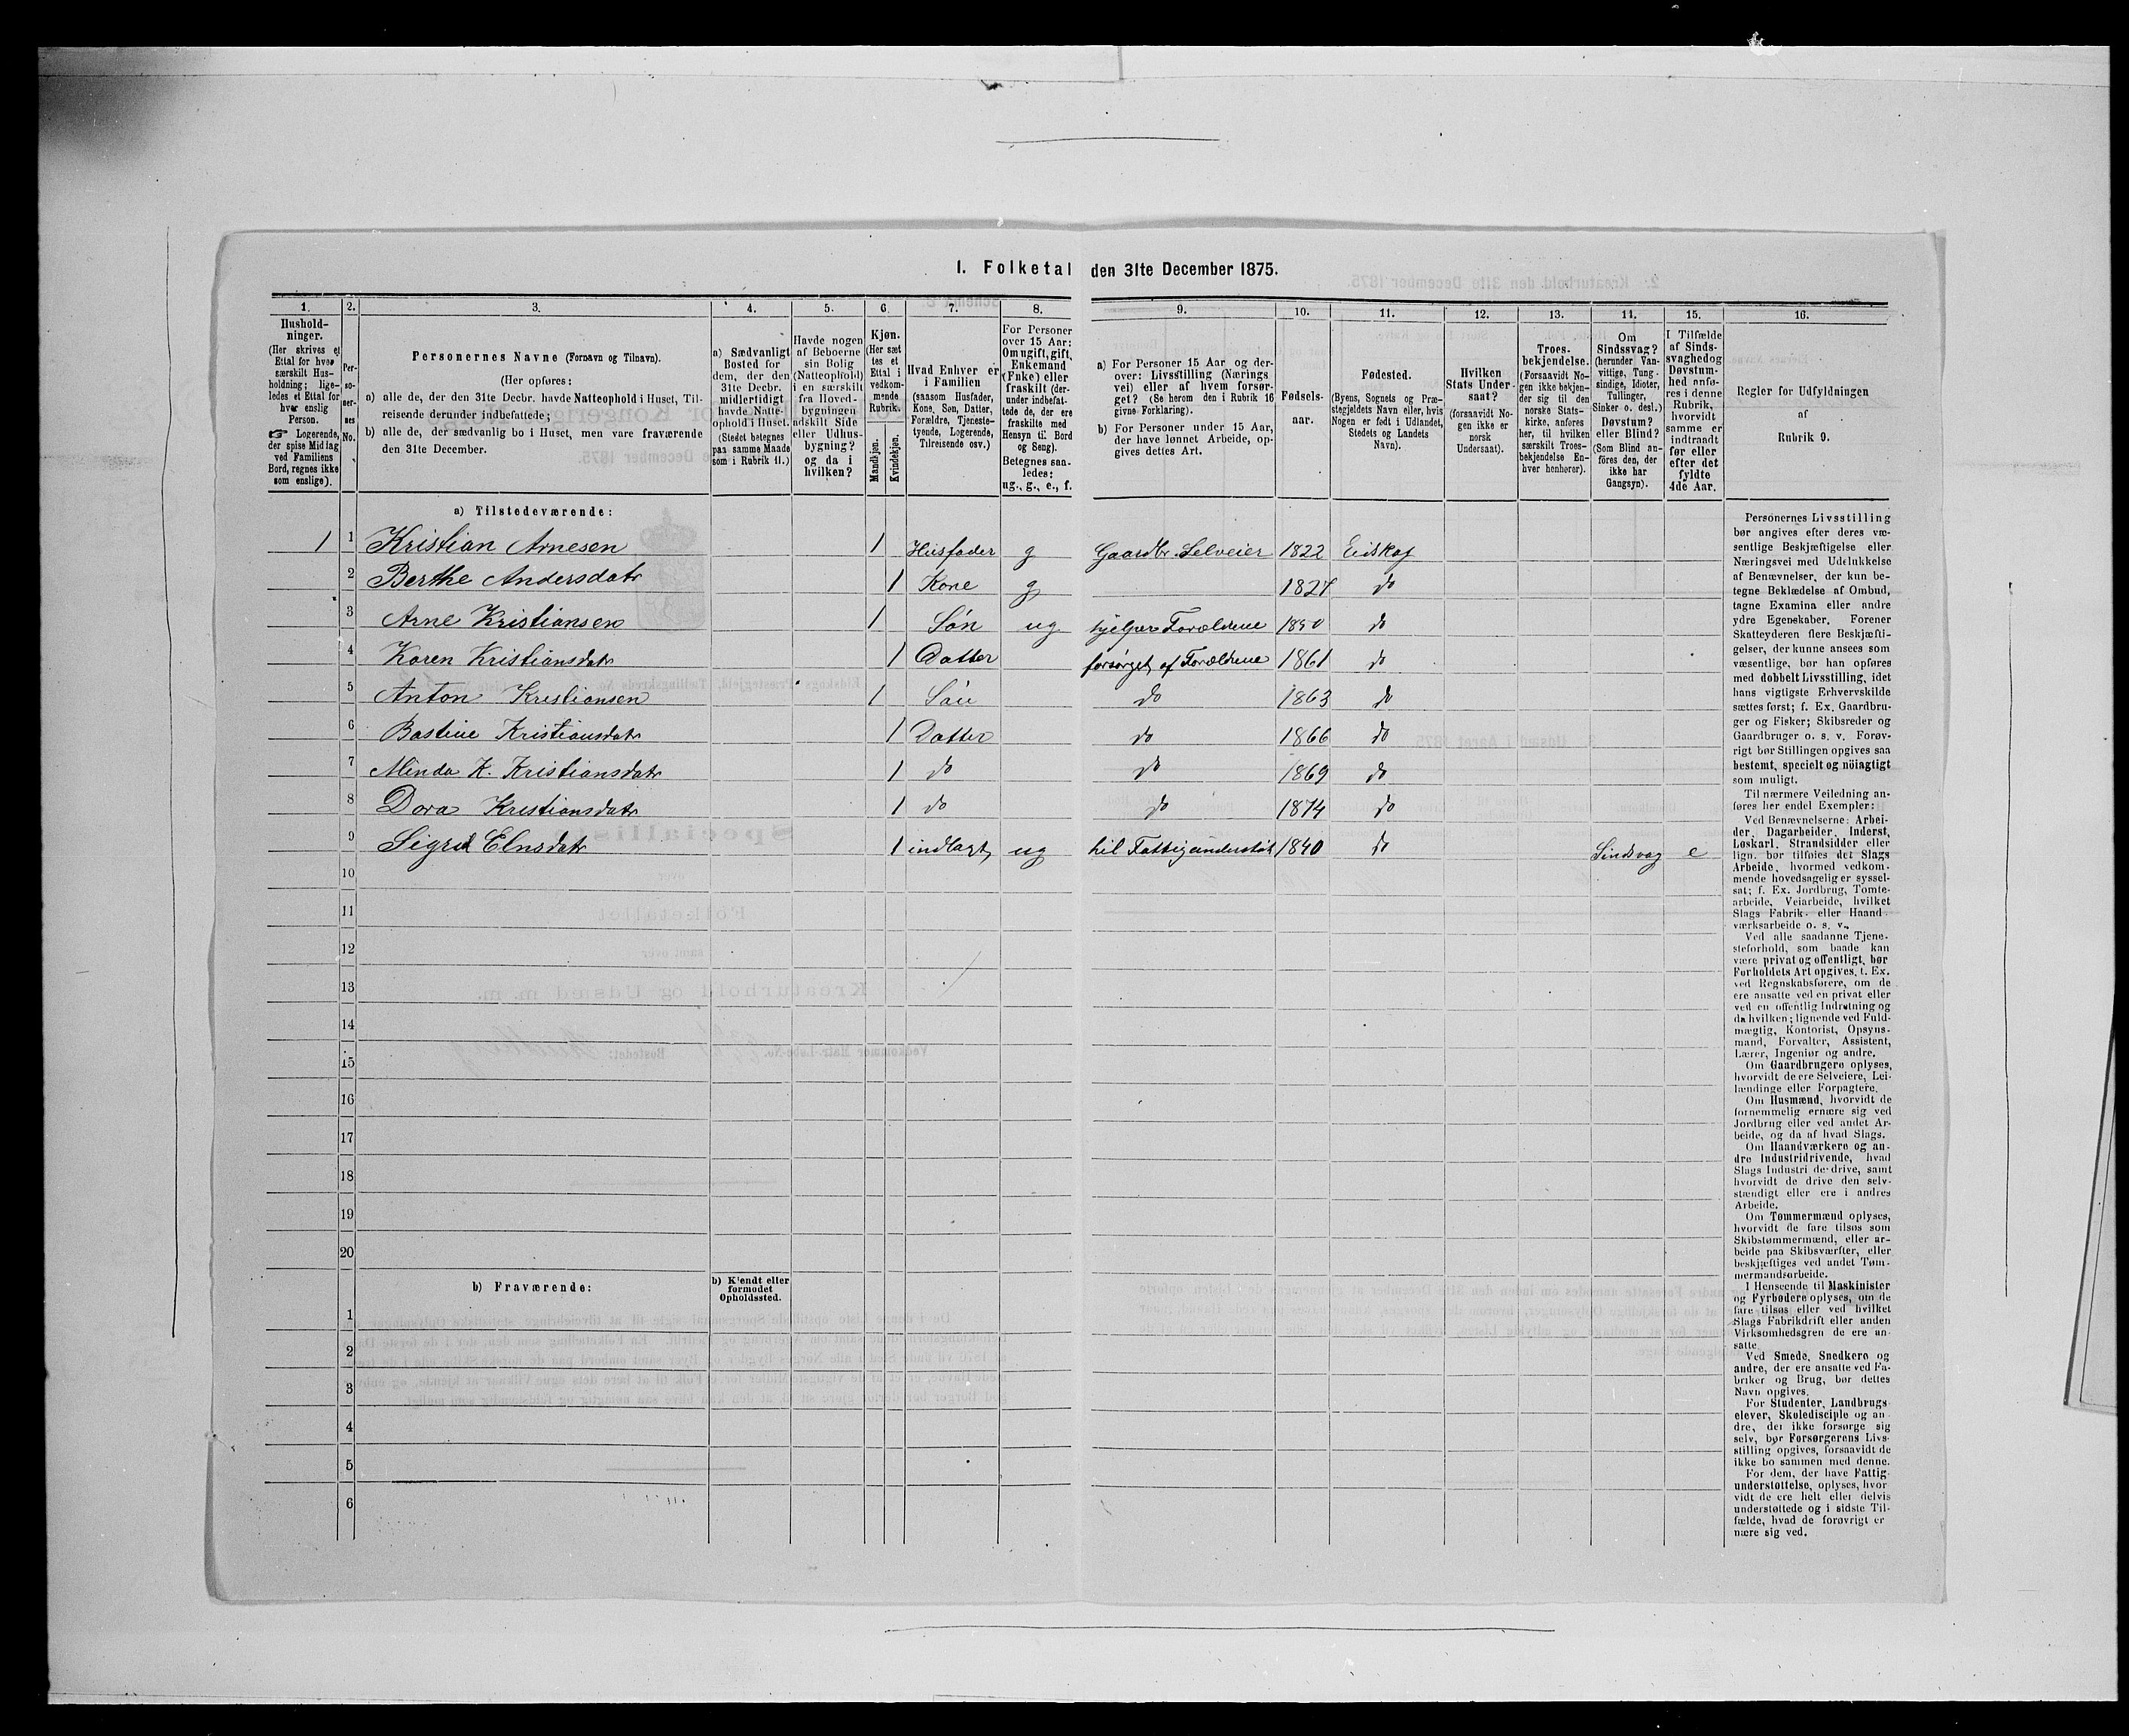 I. Folketal den 31te December 1875.
1. 2. 3. 4. 5. 6. 7. 8. 9. 10. 11. 12. 13. 14. 15. 16.
Hushold-
ninger.
(Her skrives et
Ettal for hver
særskilt Hus-
holdning; lige-
ledes et Ettal for
hver enslig
Person.
☞ Logerende,
der spise Middag
ved Familiens
Bord, regnes ikke
som enslige).
Per-
so-
ner-
nes
No.
Personernes Navne (Fornavn og Tilnavn).
(Her opføres:
a) alle de, der den 31te Decbr. havde Natteophold i Huset, Til-
reisende derunder indbefattede;
b) alle de, der sædvanlig bo i Huset, men vare fraværende
den 31te December.
a) Sædvanligt
Bosted for
dem, der den
31te Decbr.
midlertidigt
havde Natte-
ophold i Huset.
(Stedet betegnes
paa samme Maade
som i Rubrik 11.)
Havde nogen
af Beboerne
sin Bolig
(Natteophold)
i en særskilt
fra Hoved-
bygningen
adskilt Side
eller Udhus-
bygning?
og da i
hvilken?
Kjøn.
(Her sæt
tes et
Ettal i
vedkom-
mende
Rubrik.
Mandkjøn.
Kvindekjøn.
Hvad Enhver er
i Familien
(saasom Husfader,
Kone, Søn, Datter,
Forældre, Tjeneste-
tyende, Logerende,
Tilreisende osv.)
For Personer
over 15 Aar:
Om ugift, gift,
Enkemand
(Enke) eller
fraskilt (der-
under indbefat-
tede de, der ere
fraskilte med
Hensyn til Bord
og Seng).
Betegnes saa-
ledes:
ug., g., e., f.
a) For Personer 15 Aar og der-
over: Livsstilling (Nærings
vei) eller af hvem forsør-
get? (Se herom den i Rubrik 16
givne Forklaring).
b) For Personer under 15 Aar,
der have lønnet Arbeide, op-
gives dettes Art.
Fødsels-
aar.
Fødested.
(Byens, Sognets og Præ-
stegjeldets Navn eller, hvis
Nogen er født i Udlandet,
Stedets og Landets
Navn).
Hvilken
Stats Under-
saat?
(forsaavidt No-
gen ikke er
norsk
Undersaat).
Troes-
bekjendelse.
(Forsaavidt No-
gen ikke bekjen-
der sig til den
norske Stats-
kirke, anføres
her, til hvilken
særskilt Troes-
bekjendelse En-
hver henhører).
Om
Sindssvag?
(herunder Van-
vittige, Tung-
sindige, Idioter,
Tullinger,
Sinker o. desl.)
Døvstum?
eller Blind?
(Som Blind an-
føres den, der
ikke har
Gangsyn).
I Tilfælde
af Sinds-
svaghedog
Døvstum-
hed anfø-
res i denne
Rubrik,
hvorvidt
samme er
indtraadt
før eller
efter det
fyldte
4de Aar.
Regler for Udfyldningen
af
Rubrik 9.
a) Tilstedeværende:
1 1 Kristian Arnesen 1 Husfader g Gaardbr. Selveier 1822 Eidskog
2 Berthe Andersdatr 1 Kone g 1827 do
3 Arne Kristiansen 1 Søn ug hjelper Forældrene 1850 do
4 Karen Kristiansdatr 1 Datter forsørget af Forældrene 1861 do
5 Anton Kristiansen 1 Søn do 1863 do
6 Bastine Kristiansdatr 1 Datter do 1866 do
7 Minda K. Kristiansdatr 1 do do 1869 do
8 Dora Kristiansdatr 1 do do 1874 do
9 Sigrid 1 indlagt ug hel 1840 do Sindsvag e
10
11
12
13
14
15
16
17
18
19
20
b) Fraværende:
b) Kjendt eller
formodet
Opholdssted.
1
2
3
4
5
6
Personernes Livsstilling
bør angives efter deres væ-
sentlige Beskjæftigelse eller
Næringsvei med Udelukkelse
af Benævnelser, der kun be-
tegne Beklædelse af Ombud,
tagne Examina eller andre
ydre Egenskaber. Forener
Skatteyderen flere Beskjæfti-
gelser, der kunne ansees som
væsentlige, bør han opføres
med dobbelt Livsstilling, idet
hans vigtigste Erhvervskilde
sættes først; f. Ex. Gaardbru-
ger og Fisker; Skibsreder og
Gaardbruger o. s. v. Forøv-
rigt bør Stillingen opgives saa
bestemt, specielt og nöiagtigt
som muligt.
Til nærmere Veiledning an-
føres her endel Exempler:
Ved Benævnelserne: Arbei-
der, Dagarbeider, Inderst,
Løskarl, Strandsidder eller
lign. bør tilføies det Slags
Arbeide, hvormed vedkom-
mende hovedsagelig er syssel-
sat; f. Ex. Jordbrug, Tomte-
arbeide, Veiarbeide, hvilket
Slags Fabrik- eller Haand-
værksarbeide o. s. v.
Ved alle saadanne Tjene-
steforhold, som baade kan
være privat og offentligt, bør
Forholdets Art opgives, t. Ex.
ved Regnskabsførere, om de
ere ansatte ved en privat eller
ved en offentlig Indretning og
da hvilken; lignende ved Fuld-
mægtig, Kontorist, Opsyns-
mand, Forvalter, Assistent,
Lærer, Ingeniør og andre.
Om Gaardbrugere oplyses,
hvorvidt de ere Selveiere, Lei-
lændinge eller Forpagtere.
Om Husmænd, hvorvidt de
fornemmelig ernære sig ved
Jordbrug eller ved andet Ar-
beide, og da af hvad Slags.
Om Haandværkere og an-
dre Industridrivende, hvad
Slags Industri de drive, samt
hvorvidt de drive den selv-
stændigt eller ere i andres
Arbeide.
Om Tømmermænd oplyses,
hvorvidt de fare tilsøs som
Skibstømmermænd, eller ar-
beide paa Skibsværfter, eller
beskjæftiges ved andet Tøm-
mermandsarbeide.
I Henseende til Maskinister
og Fyrbødere oplyses, om de
fare tilsøs eller ved hvilket
Slags Fabrikdrift eller anden
Virksomhedsgren de ere an-
satte.
Ved Smede, Snedkere og
andre, der ere ansatte ved Fa-
briker og Brug, bør dettes
Navn opgives.
For Studenter, Landbrugs-
elever, Skoledisciple og an-
dre, der ikke forsørge sig
selv, bør Forsørgerens Livs-
stilling opgives, forsaavidt de
ikke bo sammen med denne.
For dem, der have Fattig-
understøttelse, oplyses, hvor
vidt de ere helt eller delvis
understøttede og i sidste Til-
fælde, hvad de forøvrigt er
nære sig ved.